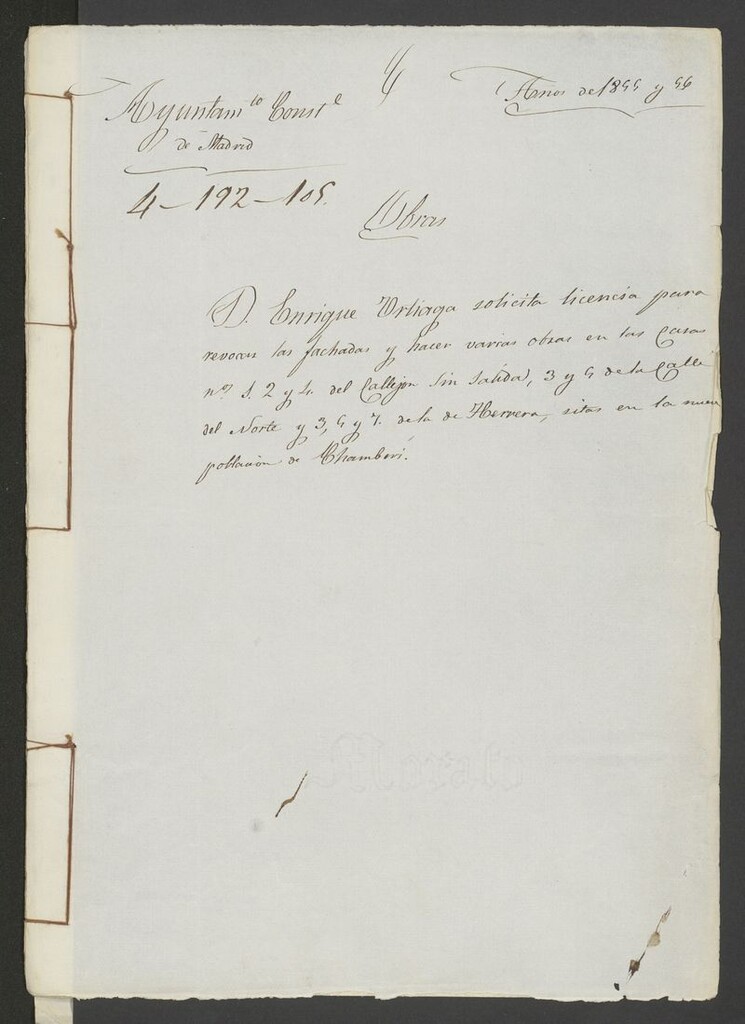 Años de 1855 y 56
Ayuntam.to Const.l
de Madrid
4-192-105.
Obras
D. Enrique Urtiaga solicita licencia para
revocar las fachadas y hacer varias obras en las Casas
n.os 1. 2 y 4. del Callejon Sin Salida, 3 y 5 de la Calle
del Norte y 3, 5 y 7. de la de Herrera, sitas en la nueva
poblacion de Chamberi.